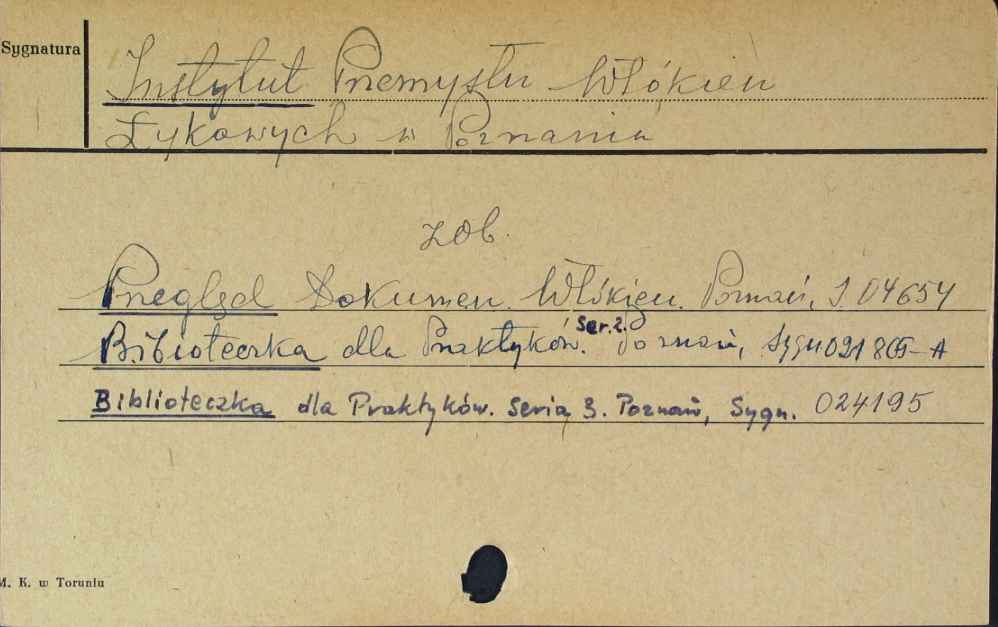 Sygnatura
Instytut Przemysłu Włókien
Łykowych w Poznaniu
zob.
Przegląd Dokumen. Włókien. Poznań, S. 04654
Biblioteczka dla Praktyków. Ser.2. Poznań, Sygn 021 86-A
Biblioteczka dla Praktyków. Seria 3. Poznań, Sygn. 024195
M. K. w Toruniu